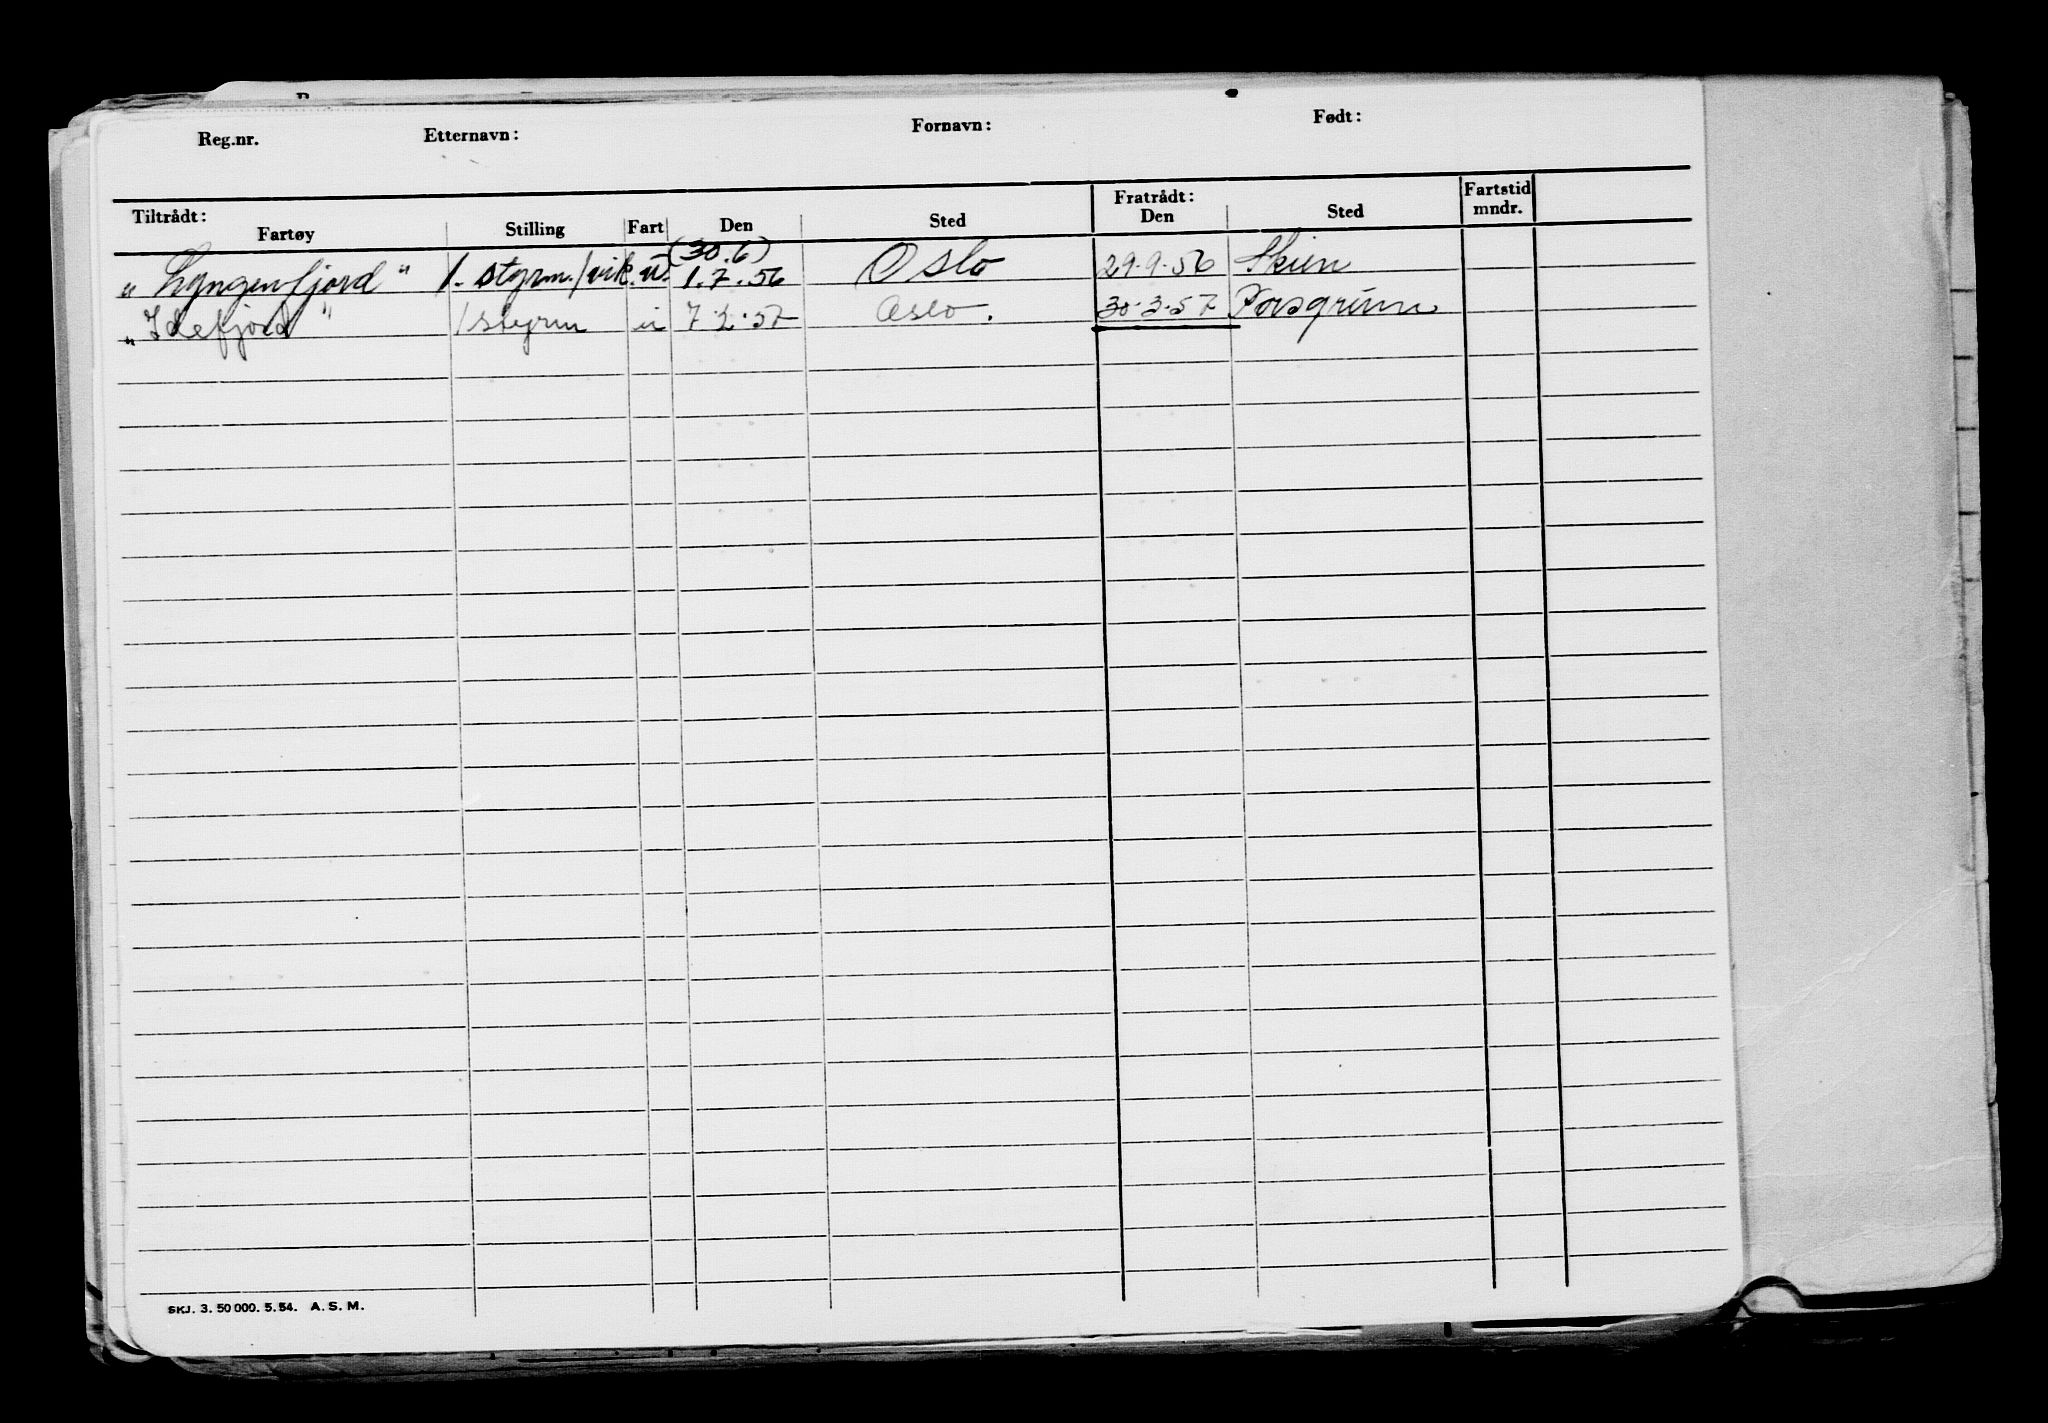 Reg.nr. Etternavn: Fornavn: Født:
Tiltrådt: Fratrådt: Fartstid
Fartøy Stilling Fart Den Sted Den Sted mndr.
(30.6)
"Lyngenfjord" 1. styrm./vik. u. 1.7.56 Oslo 29.9.56 Skien
"Idefjord" 1 styrm u 7 2.57 Oslo. 30.3.57 Porsgrunn
SKJ. 3. 50 000. 5. 54. A. S. M.